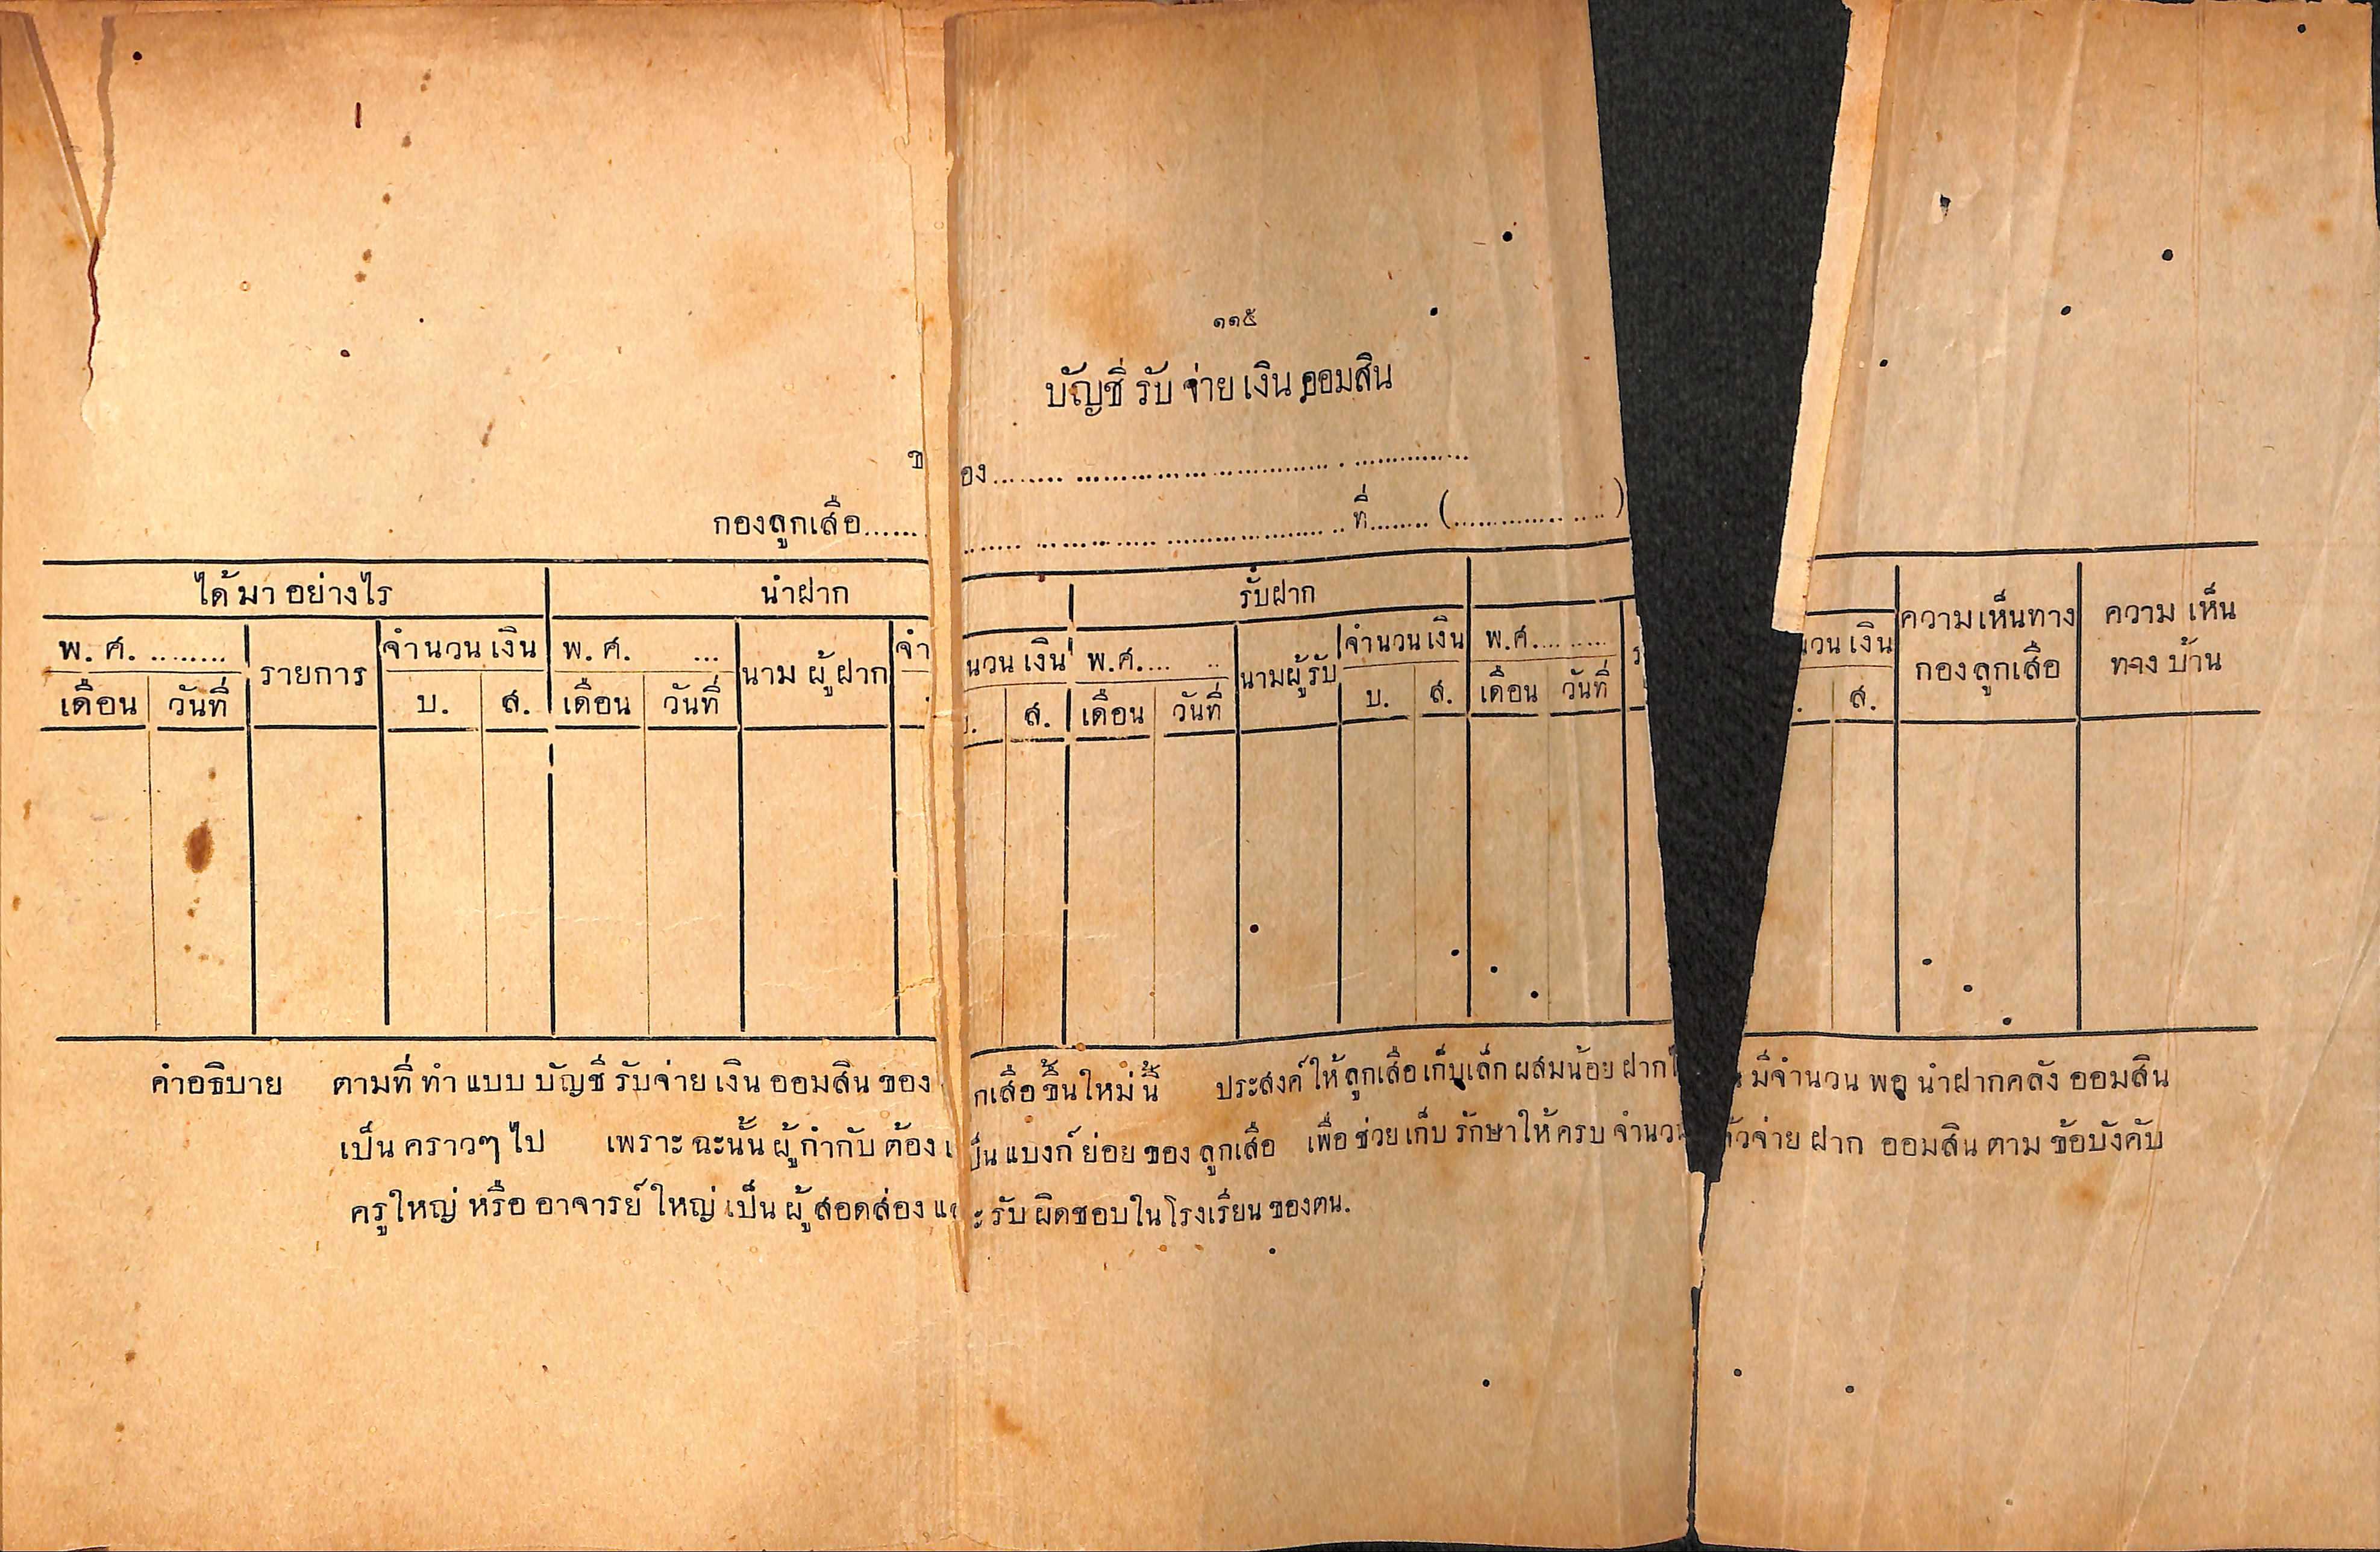 ๑๑๕
บัญชี รับ จ่าย เงิน ออมสิน
ของ........ .......................... . .............
กองลูกเสือ...... ...... ............. .................... ..ที่........(.................. ....)
ได้ มา อย่างไร นำฝาก รับฝาก
พ. ศ. ........ รายการ จำนวน เงิน พ. ศ. ... นาม ผู้ ฝาก จำนวน เงิน พ.ศ.... .. นามผู้รับ จำนวน เงิน พ.ศ.... ..... นวน เงิน ความเห็นทาง กองลูกเสือ ความ เห็น ทาง บ้าน
เดือน วันที่ บ. ส. เดือน วันที่ บ. ส. เดือน วันที่ บ. ส. เดือน วันที่ ส.
คำอธิบาย ตามที่ ทำ แบบ บัญชี รับจ่าย เงิน ออมสิน ของ กเสือ ขึ้นใหม่ นี้ ประสงค์ ให้ ลูกเสือ เก็บเล็ก ผสมน้อย ฝาก มีจำนวน พอ นำฝากคลัง ออมสิน
เป็น คราวๆ ไป เพราะ ฉะนั้น ผู้ กำกับ ต้อง เป็น แบงก์ ย่อย ของ ลูกเสือ เพื่อ ช่วย เก็บ รักษาให้ ครบ จำนวน แล้วจ่าย ฝาก ออมสิน ตาม ข้อบังคับ
ครูใหญ่ หรือ อาจารย์ ใหญ่ เป็น ผู้ สอดส่อง และ รับ ผิดชอบ ใน โรงเรียน ของตน.